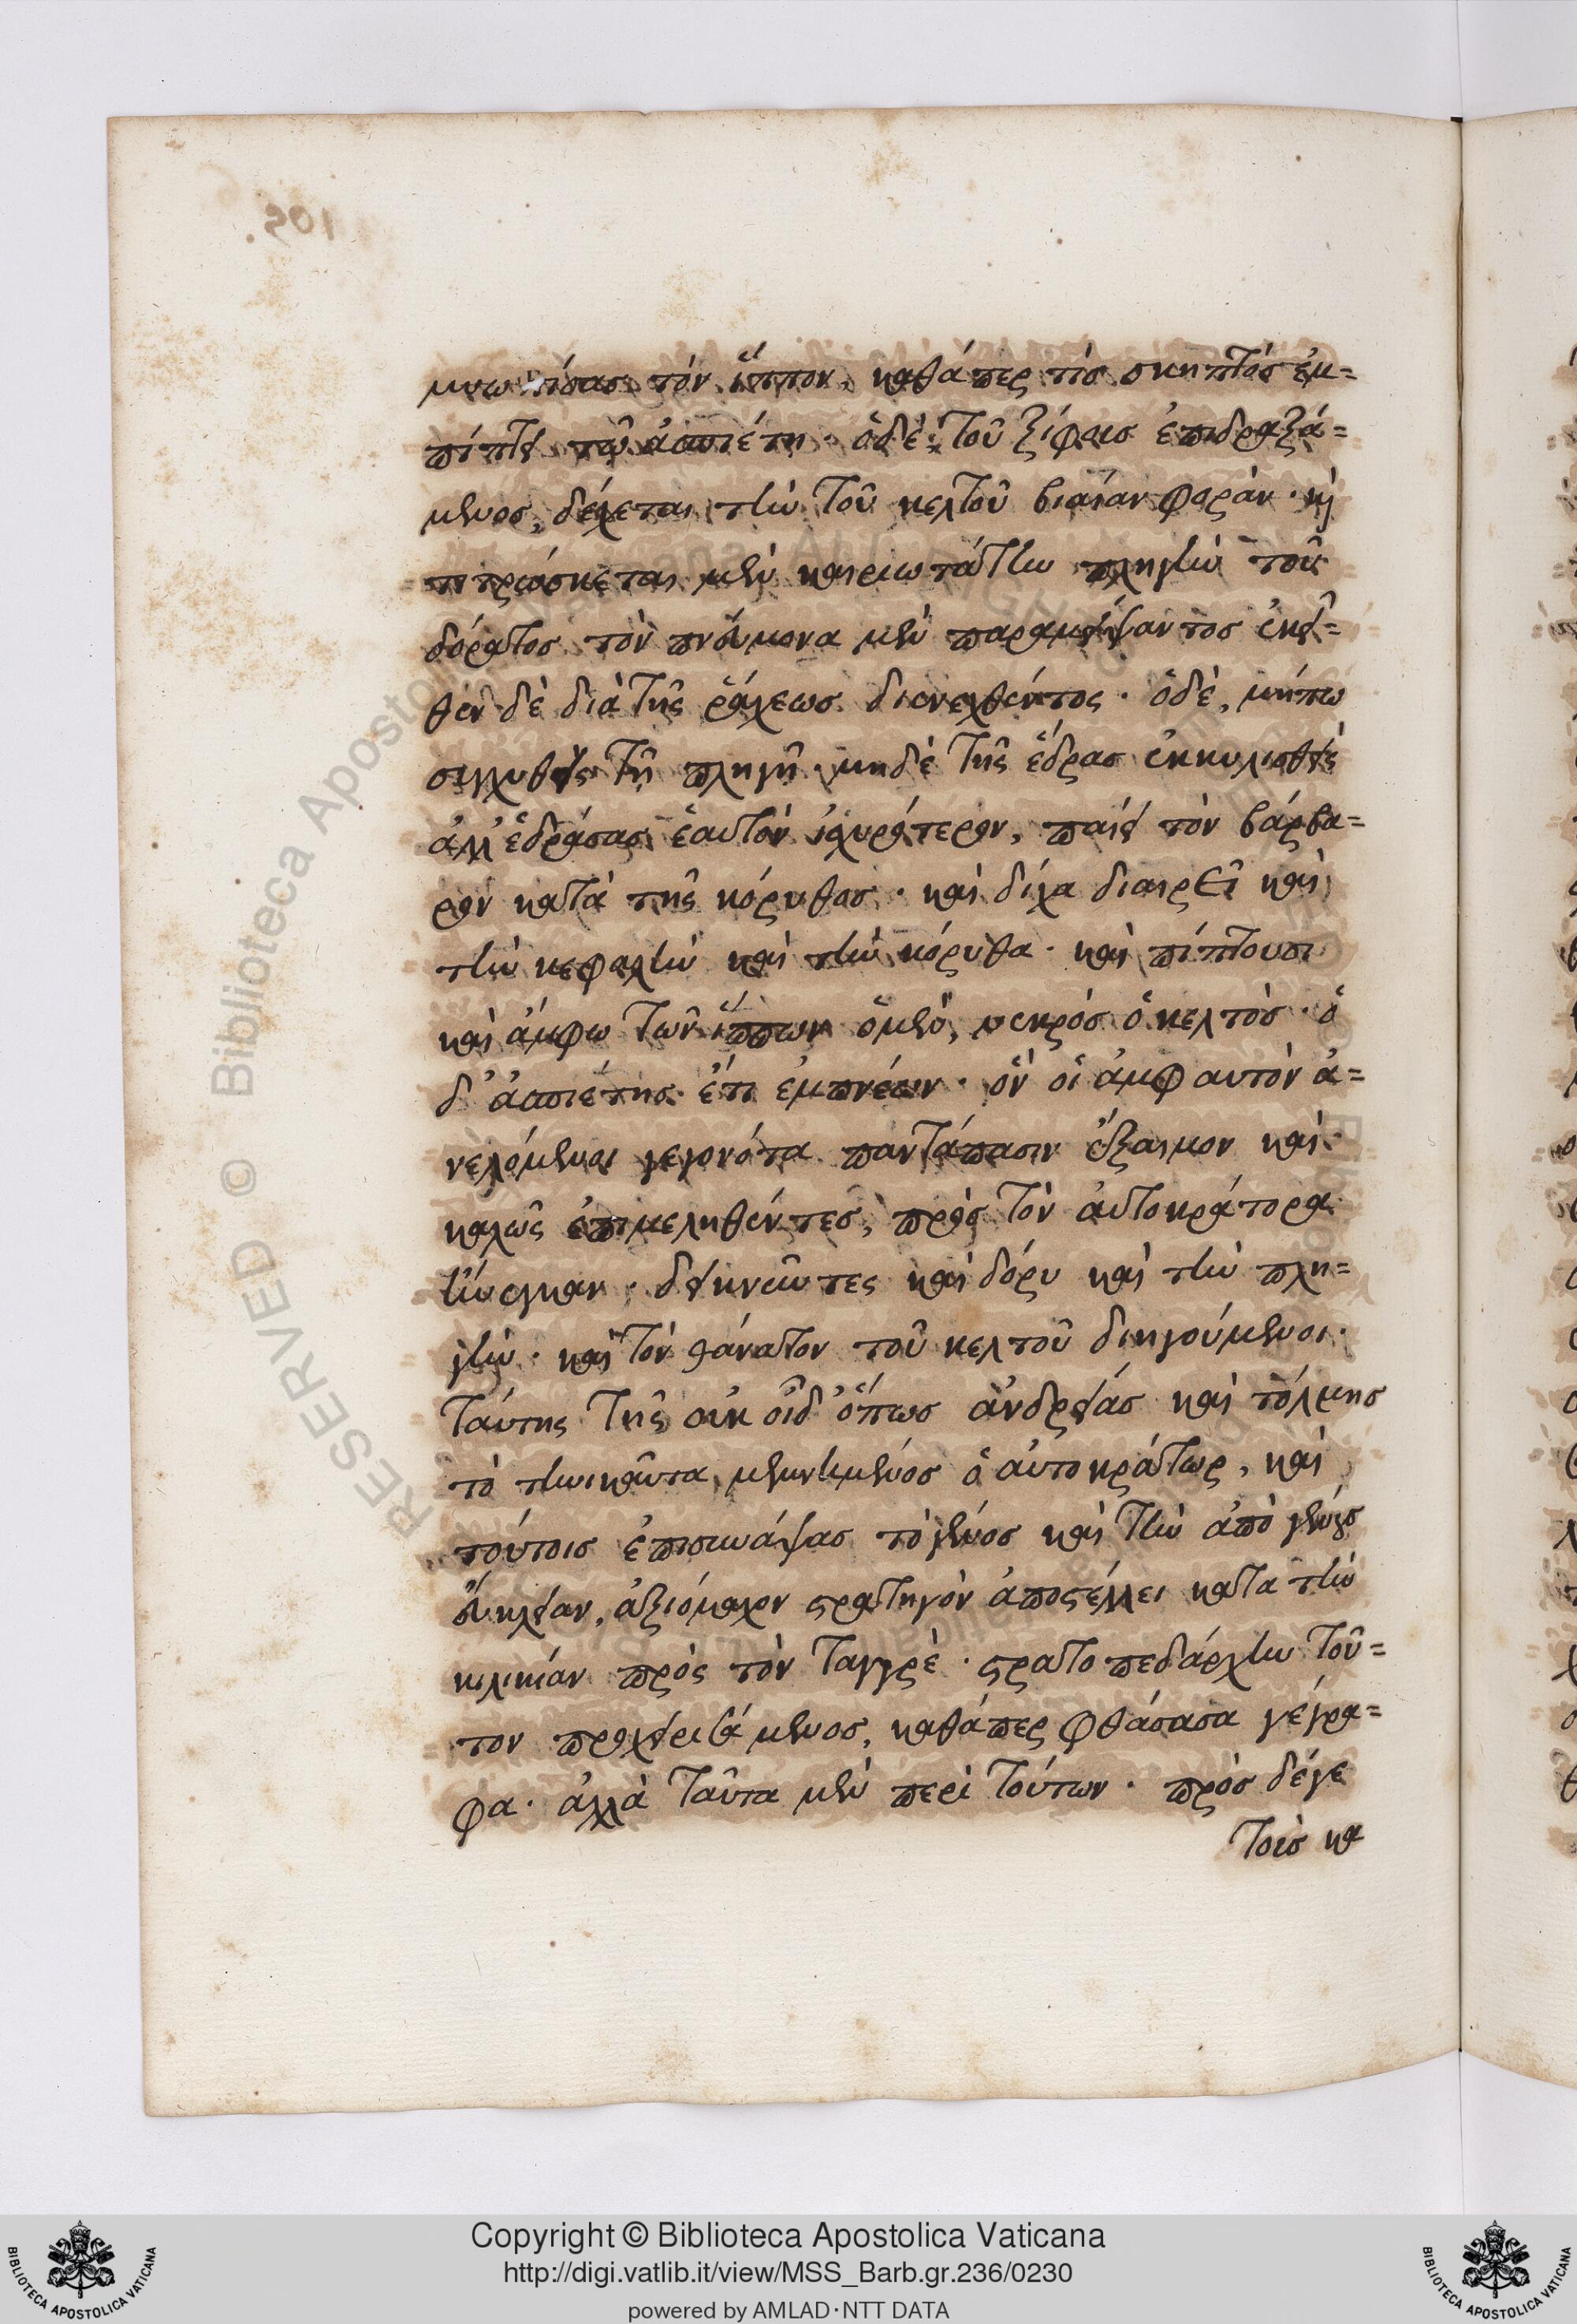 105.
μυωπίσας τὸν ἵππον, καθάπερ τίς σκηπτὸς ἐμ=
πίπτει τῶ ἀσπιέτη· ὁ δὲ τοῦ ξίφους ἐπιδραξά=
μενος, δέχεται τὴν τοῦ κελτοῦ βιαίαν φορὰν· καὶ
τιτρώσκεται μὲν καιριωτάτην πληγὴν τοῦ
δόρατος τὸν πνεύμονα μὲν παραμείψαντος ἐκεῖ=
θεν δὲ διὰ τῆς ῥάχεως διενεχθέντος· ὁ δὲ, μήπω
συγχυθεὶς τῆ πληγῆ· μηδὲ τῆς ἕδρας ἐκκυλισθεὶς
ἀλλ' ἑδράσας ἑαυτὸν ἰσχυρότερον, παίει τὸν βάρβα=
ρον κατὰ τῆς κόρυθος· καὶ δίχα διαιρεῖ καὶ
τὴν κεφαλὴν καὶ τὴν κόρυθα· καὶ πίπτουσι
καὶ ἄμφω τῶν ἵππων ὁ μὲν, νεκρὸς ὁ κελτὸς· ὁ
δ' ἀσπιέτης ἔτι ἐμπνέων· ὃν οἱ ἀμφ αὐτὸν ἀ=
νελόμενοι γεγονότα παντάπασιν ἔξαιμον καὶ
καλῶς ἐπιμεληθέντες, πρὸς τὸν αὐτοκράτορα
ἤνεγκαν· δεικνῦντες καὶ δόρυ καὶ τὴν πλη=
γὴν· καὶ τὸν θάνατον τοῦ κελτοῦ διηγούμενοι·
ταύτης τῆς οὐκ οἶδ' ὅπως ἀνδρείας καὶ τόλμης
τὸ τηνικαῦτα μεμνημένος ὁ αὐτοκράτωρ, καὶ
τούτοις ἐπισυνάψας τὸ γένος καὶ τὴν ἀπὸ γένους
εὔκλειαν, ἀξιόμαχον στρατηγὸν ἀποστέλλει κατα τὴν
κιλικίαν πρὸς τὸν ταγγρὲ· στρατοπεδάρχην τοῦ=
τον προχειρισάμενος, καθάπερ φθάσασα γέγρα=
φα· ἀλλὰ ταῦτα μὲν περὶ τούτων· πρὸς δέ γε
τοὺς κα
Copyright © Biblioteca Apostolica Vaticana
http://digi.vatlib.it/view/MSS_Barb.gr.236/0230
powered by AMLAD·NTT DATA